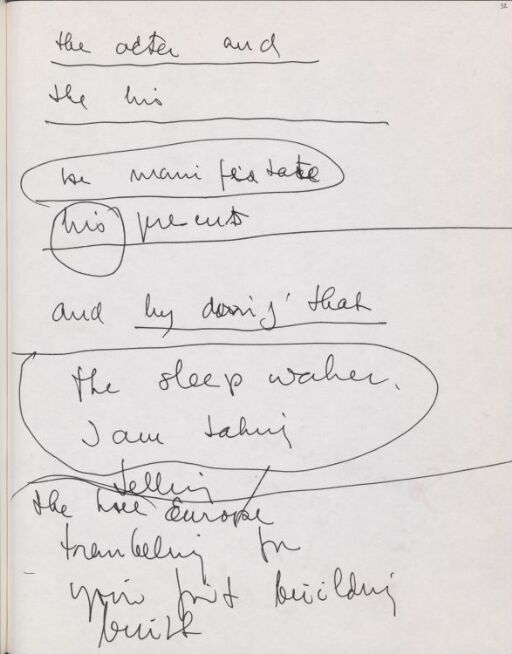 the acter and
the his
be manifestate
his presents
and by doing that
the sleep walker.
I am taking
telling
the hole Europe
trembeling for
your first building
built